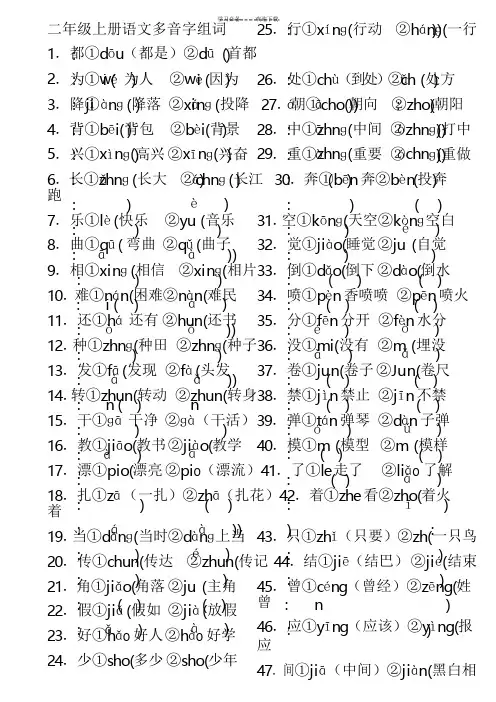 二年级上册语文多音字组词
1. 都①dōu（都是）②dū（首都
2. 为①wéi(为人 ②wèi(因为
3. 降①jiàng(降落 ②xiáng(投降
4. 背①bēi(背包 ②bèi(背景
5. 兴①xìng(高兴②xīng(兴奋
6. 长①zhng(长大 ②chng(长江
7. 乐①lè(快乐 ②yu(音乐
8. 曲①qū(弯曲 ②qǔ(曲子
9. 相①xing(相信 ②xing(相片
10. 难①nán(困难②nàn(难民
11. 还①há 还有②hun(还书
12. 种①zhng(种田 ②zhng(种子
13. 发①fā(发现 ②fà(头发
14. 转①zhun(转动 ②zhun(转身
15. 干①gā 干净 ②gà（干活）
16. 教①jiāo(教书②jiào(教学
17. 漂①pio(漂亮②pio（漂流）
18. 扎①zā（一扎）②zhā（扎花）
19. 当①dāng(当时②dàng上当
20. 传①chun(传达 ②zhun(传记
21. 角①jiǎo(角落②ju(主角
22. 假①jiǎ(假如 ②jià(放假
23. 好①hǎo 好人②hào 好学
24. 少①sho(多少②sho(少年
25. 行①xíng(行动 ②háng(一行
26. 处①chù(到处）②ch(处方
27. 朝①cho(朝向 ②zho(朝阳
28. 中①zhng(中间 ②zhng(打中
29. 重①zhng(重要 ②chng(重做
30. 奔①bēn 奔②bèn(投奔
跑
31. 空①kōng(天空②kòng空白
32. 觉①jiào(睡觉②ju(自觉
33. 倒①dǎo(倒下②dào(倒水
34. 喷①pèn 香喷喷 ②pēn 喷火
35. 分①fēn 分开 ②fèn 水分
36. 没①mi(没有 ②m(埋没
37. 卷①jun(卷子②Jun(卷尺
38. 禁①jìn 禁止 ②jīn 不禁
39. 弹①tán 弹琴 ②dàn 子弹
40. 模①m(模型 ②m(模样
41. 了①le走了 ②liǎo 了解
42. 着①zhe 看②zho(着火
着
43. 只①zhǐ（只要）②zh(一只鸟
44. 结①jiē（结巴）②jié(结束
45. 曾①céng（曾经）②zēng(姓
曾
46. 应①yīng（应该）②yìng(报
应
47. 间①jiā（中间）②jiàn(黑白相